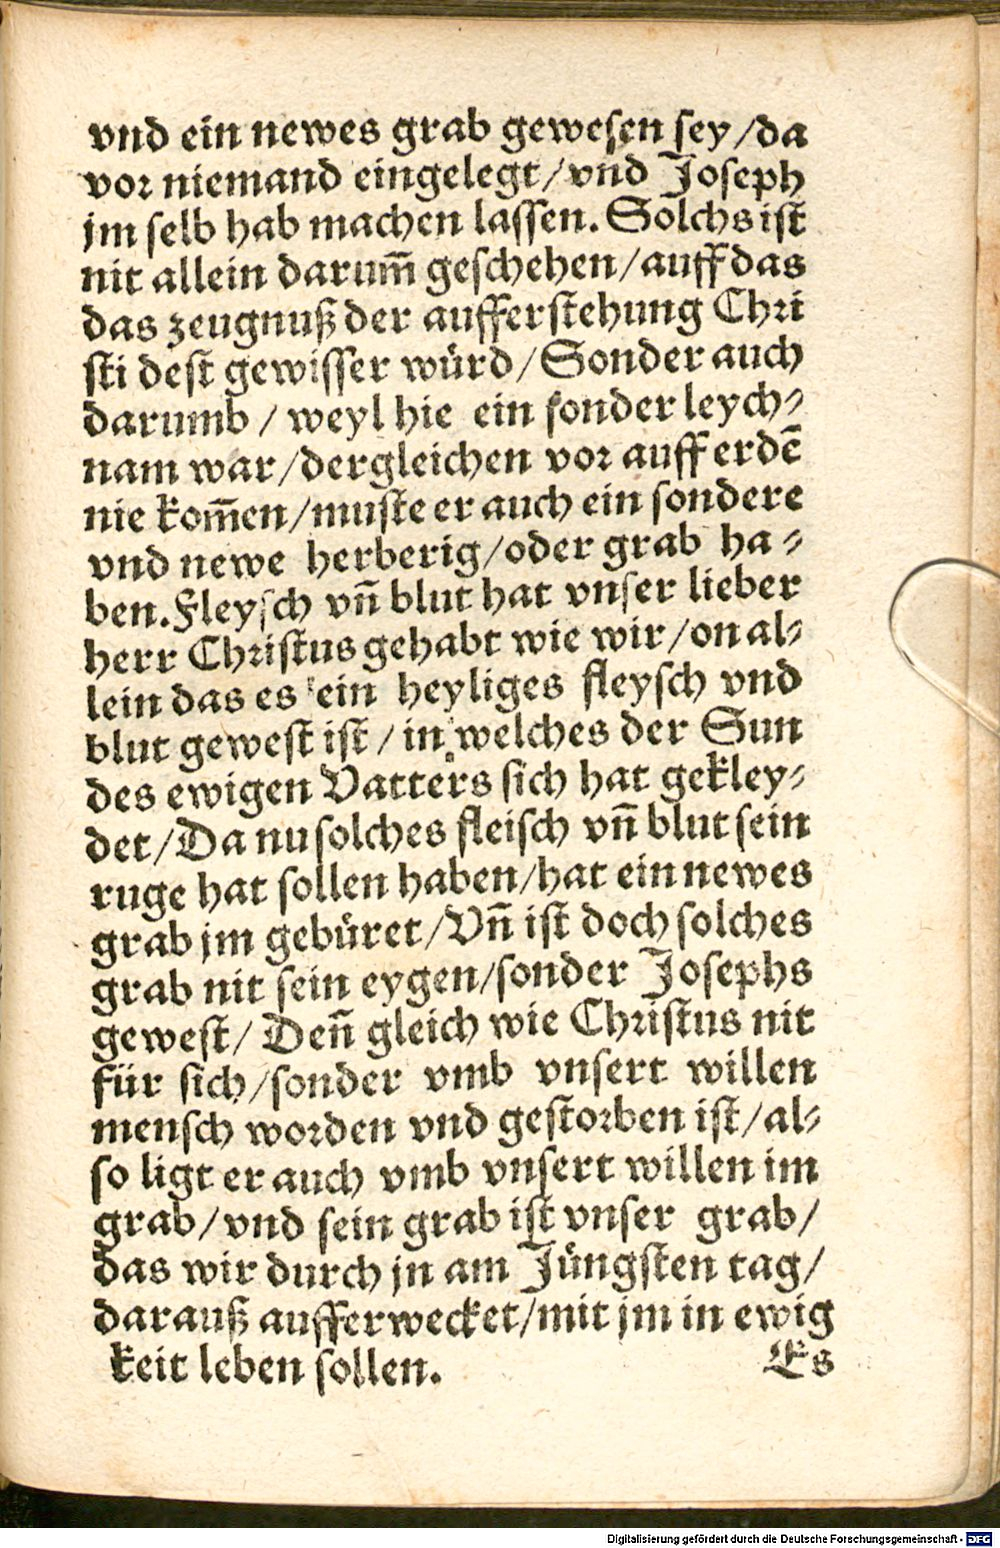 vnd ein newes grab gewesen sey/da
vor niemand eingelegt/vnd Joseph
jm selb hab machen lassen. Solchs ist
nit allein darum̄ geschehen/auff das
das zeugnuß der aufferstehung Chri
sti dest gewisser würd/Sonder auch
darumb/ weyl hie ein sonder leych⸗
nam war/dergleichen vor auff erdē
nie kom̄en/muste er auch ein sondere
vnd newe herberig/oder grab ha⸗
ben. Fleysch vn̄ blut hat vnser lieber
herr Christus gehabt wie wir/on al⸗
lein das es ein heyliges fleysch vnd
blut gewest ist/in welches der Sun
des ewigen Vatters sich hat gekley⸗
det/Da nu solches fleisch vn̄ blut sein
ruge hat sollen haben/hat ein newes
grab jm gebüret/Vn̄ ist doch solches
grab nit sein eygen/sonder Josephs
gewest/ Den̄ gleich wie Christus nit
für sich/sonder vmb vnsert willen
mensch worden vnd gestorben ist/al⸗
so ligt er auch vmb vnsert willen im
grab/vnd sein grab ist vnser grab/
das wir durch jn am Jüngsten tag/
darauß aufferwecket/mit jm in ewig
keit leben sollen. Es
Digitalisierung gefördert durch die Deutsche Forschungsgemeinschaft - DFG